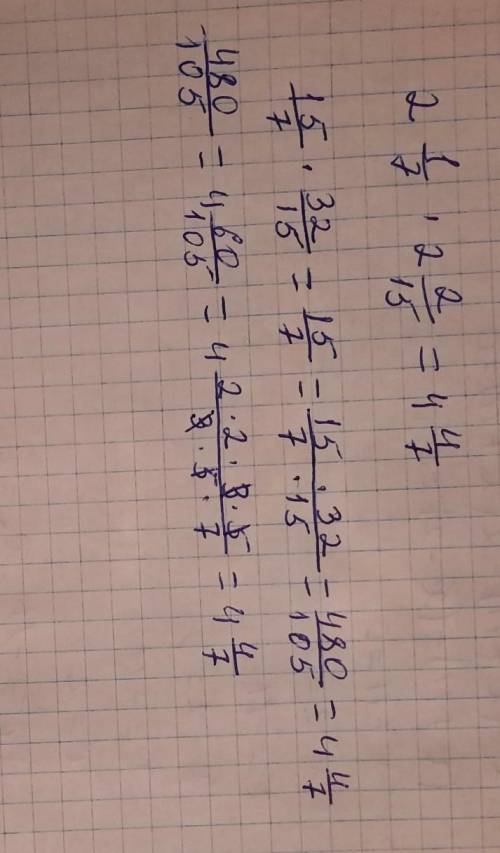 2 1/7 · 2 2/15 = 4 4/7
15/7 · 32/15 = 15/7 = 15 · 32/7 · 15 = 480/105 = 4 4/7
480/105 = 4 60/105 = 4 2 · 2 · 3 · 5/3 · 5 · 7 = 4 4/7